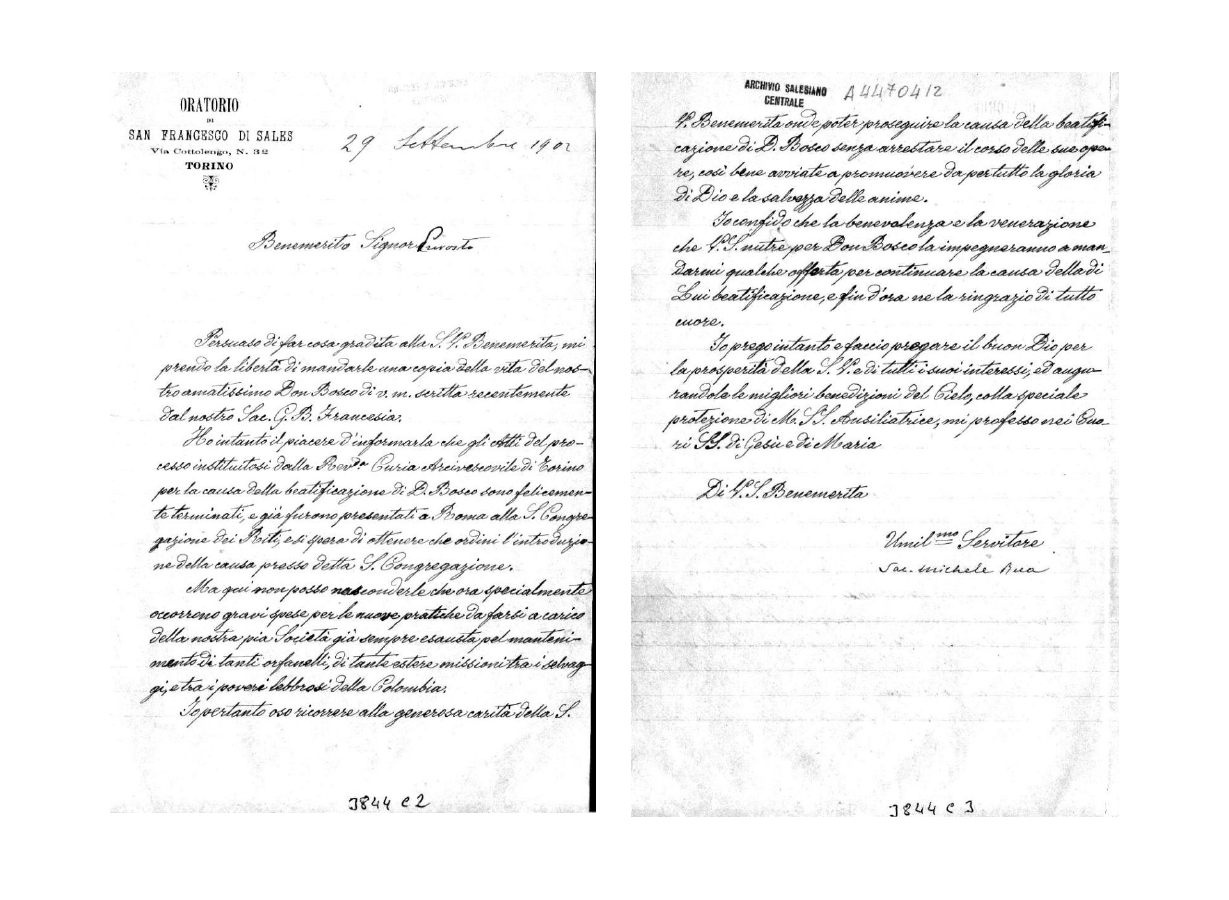 ORATORIO
DI
SAN FRANCESCO DI SALES
Via Cottolengo, N. 32
TORINO
29 Settembre 1902
Benemerito Signor Prevosto
Persuaso di far cosa gradita alla S. V. Benemerita, mi
prendo la libertà di mandarle una copia della vita del nos-
tro amatissimo Don Bosco di v. m. scritta recentemente
dal nostro Sac. G. B. Francesia.
Ho intanto il piacere d'informarla che gli Atti del pro-
cesso instituitosi dalla Revda Curia Arcivescovile di Torino
per la causa della beatificazione di D. Bosco sono felicemen-
te terminati, e già furono presentati a Roma alla S. Congre-
gazione dei Riti, e si spera di ottenere che ordini l'introduzio-
ne della causa presso detta S. Congregazione.
Ma qui non posso nasconderle che ora specialmente
occorrono gravi spese per le nuove pratiche da farsi a carico
della nostra pia Società già sempre esausta pel manteni-
mento di tanti orfanelli, di tante estere missioni tra i selvag-
gi, e tra i poveri lebbrosi della Colombia.
Io pertanto oso ricorrere alla generosa carità della S.
J844 C 2
ARCHIVIO SALESIANO
CENTRALE
A4470412
V. Benemerita onde poter proseguire la causa della beatifi-
cazione di D. Bosco senza arrestare il corso delle sue ope-
re, così bene avviate a promuovere da per tutto la gloria
di Dio e la salvezza delle anime.
Io confido che la benevolenza e la venerazione
che V. S. nutre per Don Bosco la impegneranno a man-
darmi qualche offerta per continuare la causa della di
Lui beatificazione, e fin d'ora ne la ringrazio di tutto
cuore.
Io prego intanto e faccio pregare il buon Dio per
la prosperità della S. V. e di tutti i suoi interessi, ed augu-
randole le migliori benedizioni del Cielo, colla speciale
protezione di M. SS. Ausiliatrice, mi professo nei Cuo-
ri SS. di Gesù e di Maria
Di V. S. Benemerita
Umilmo Servitore
Sac. Michele Rua
J844 C 3